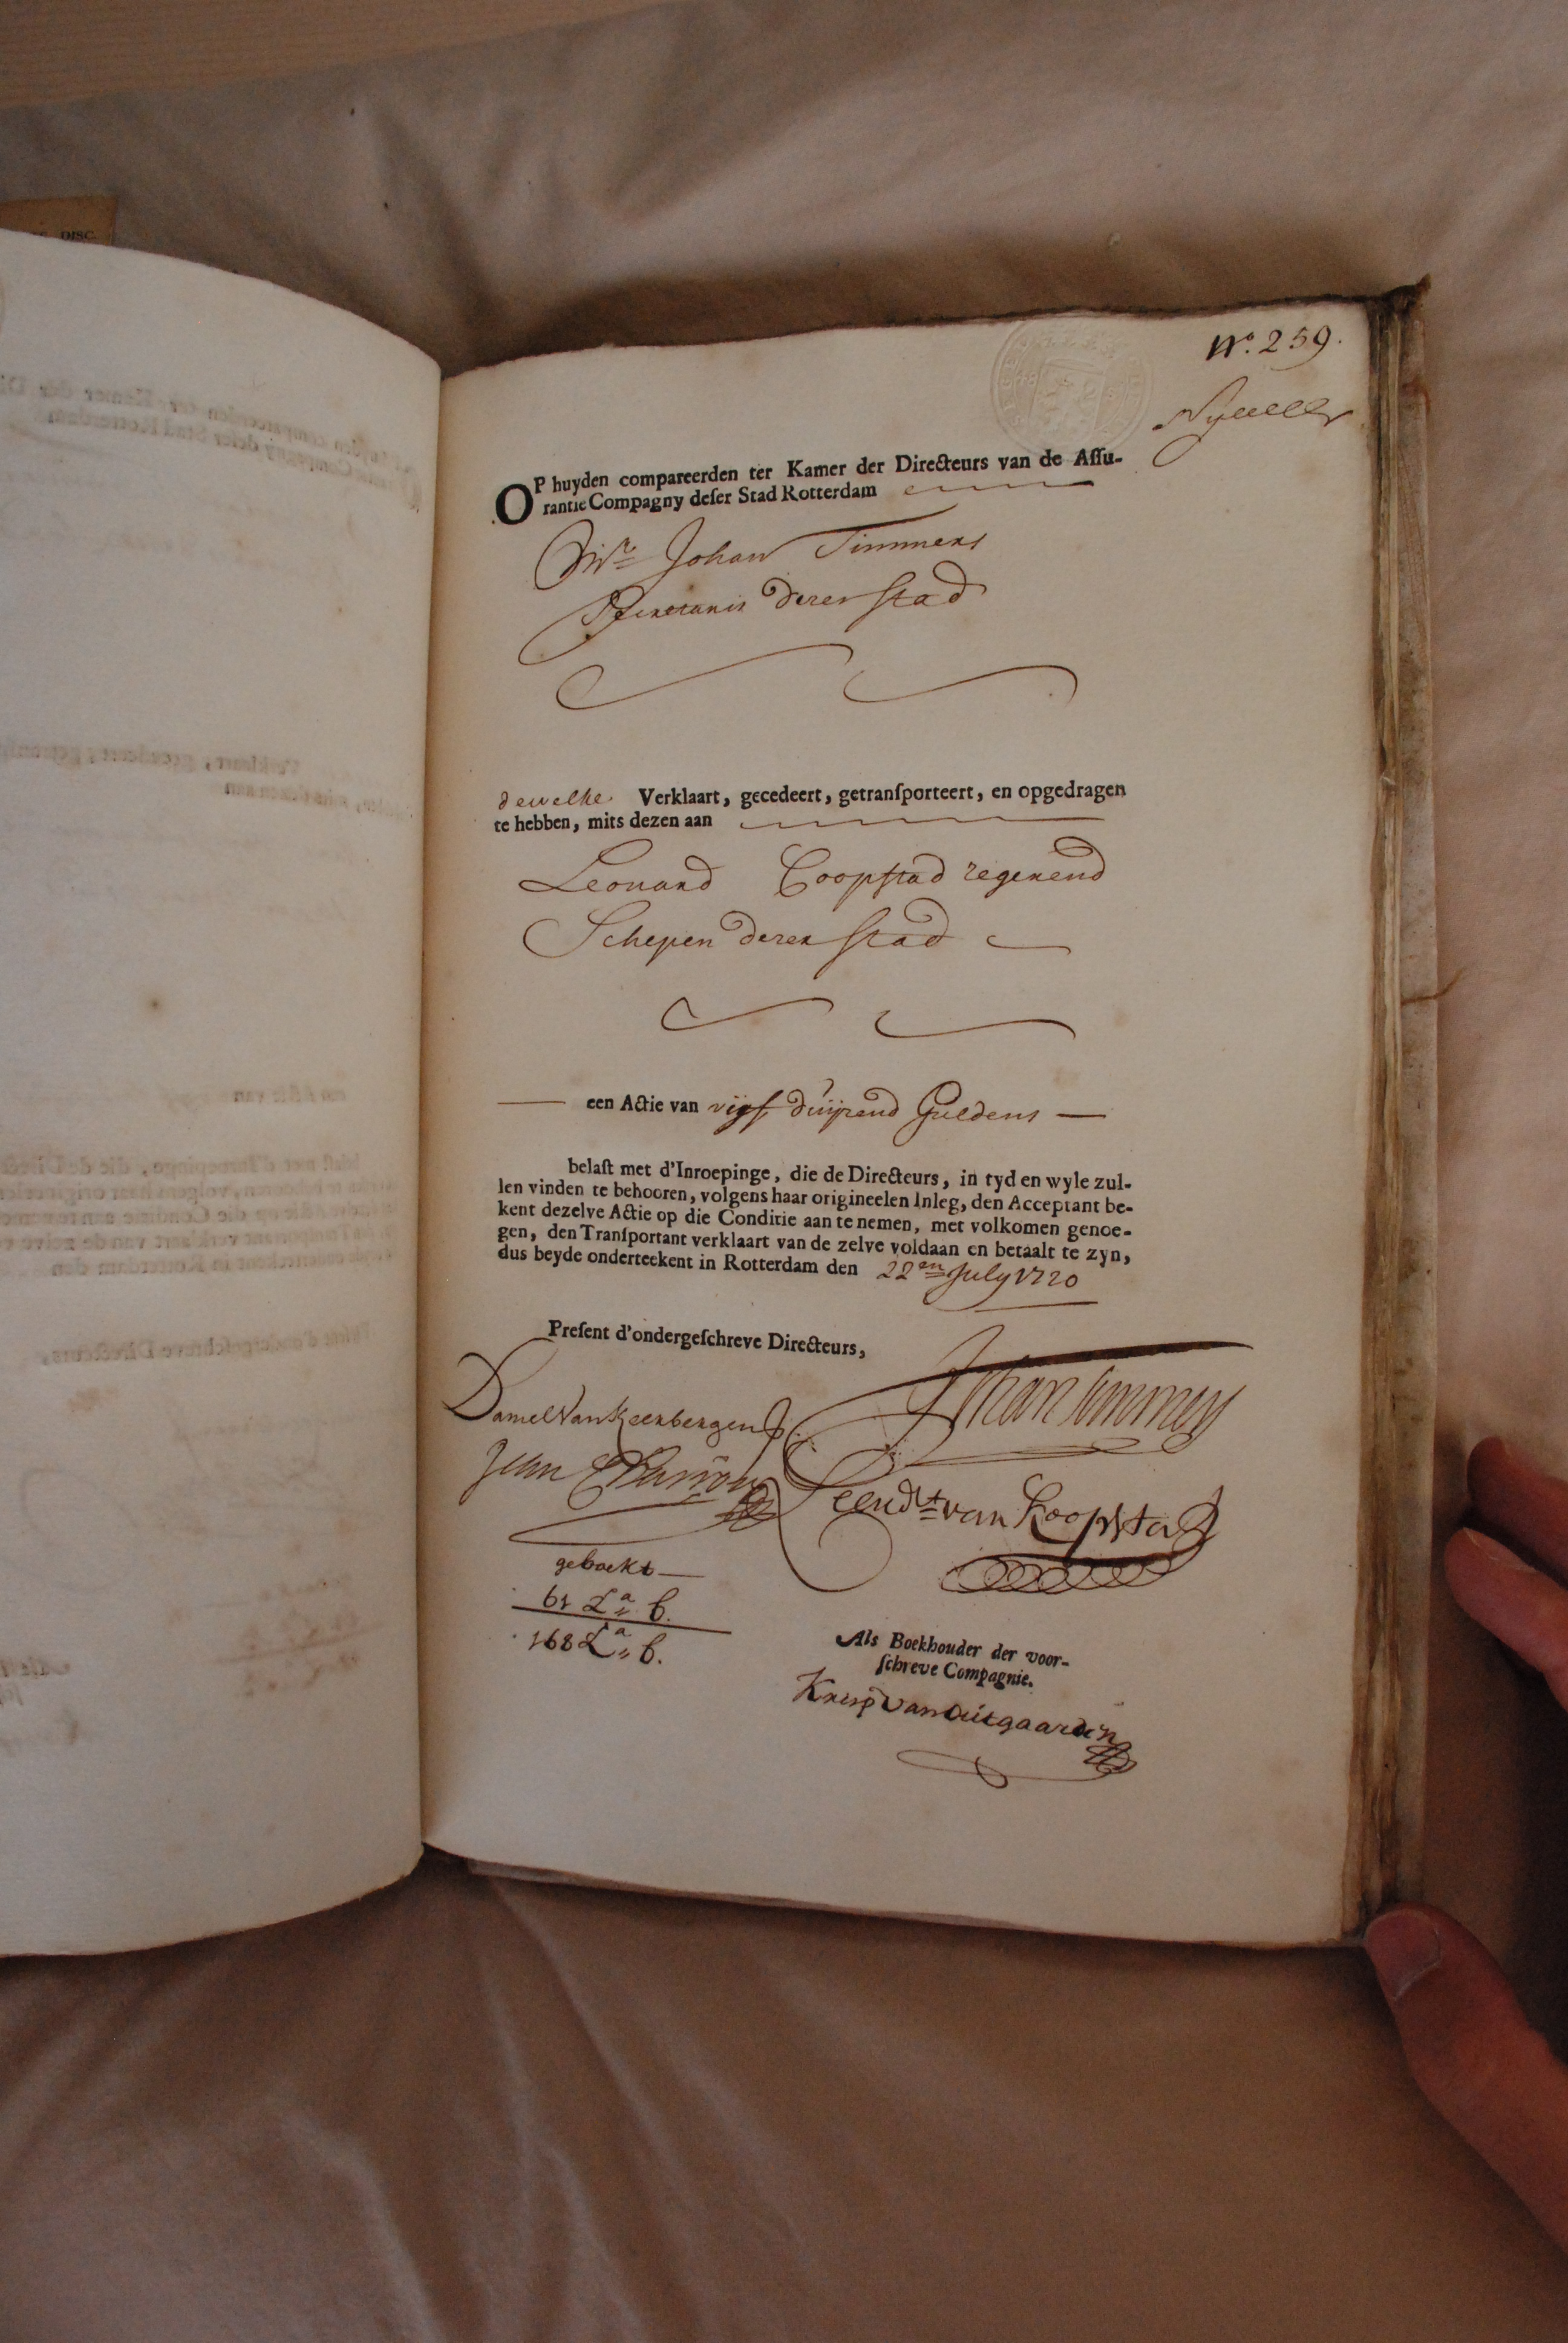 N.o 259.
OP huyden compareerden ter Kamer der Directeurs van de Assu-
rantie Compagny deser Stad Rotterdam
Mr. Johan Timmers
Secretaris deser Stad
dewelke Verklaart, gecedeert, getransporteert, en opgedragen
te hebben, mits dezen aan
Leonard Coopstad regerend
Schepen deser Stad
een Actie van vijf duijsend Guldens
belast met d'Inroepinge, die de Directeurs, in tyd en wyle zul-
len vinden te behooren, volgens haar origineelen Inleg, den Acceptant be-
kent dezelve Actie op die Conditie aan te nemen, met volkomen genoe-
gen, den Transportant verklaart van de zelve voldaan en betaalt te zyn,
dus beyde onderteekent in Rotterdam den 22en July 1720
Present d'ondergeschreve Directeurs,
Johan Timmers
Daniel Van Keerbergen J
Jean
Leendt van Koopstad
geboekt
61 La b.
168 La b.
Als Boekhouder der voor-
schreve Compagnie.